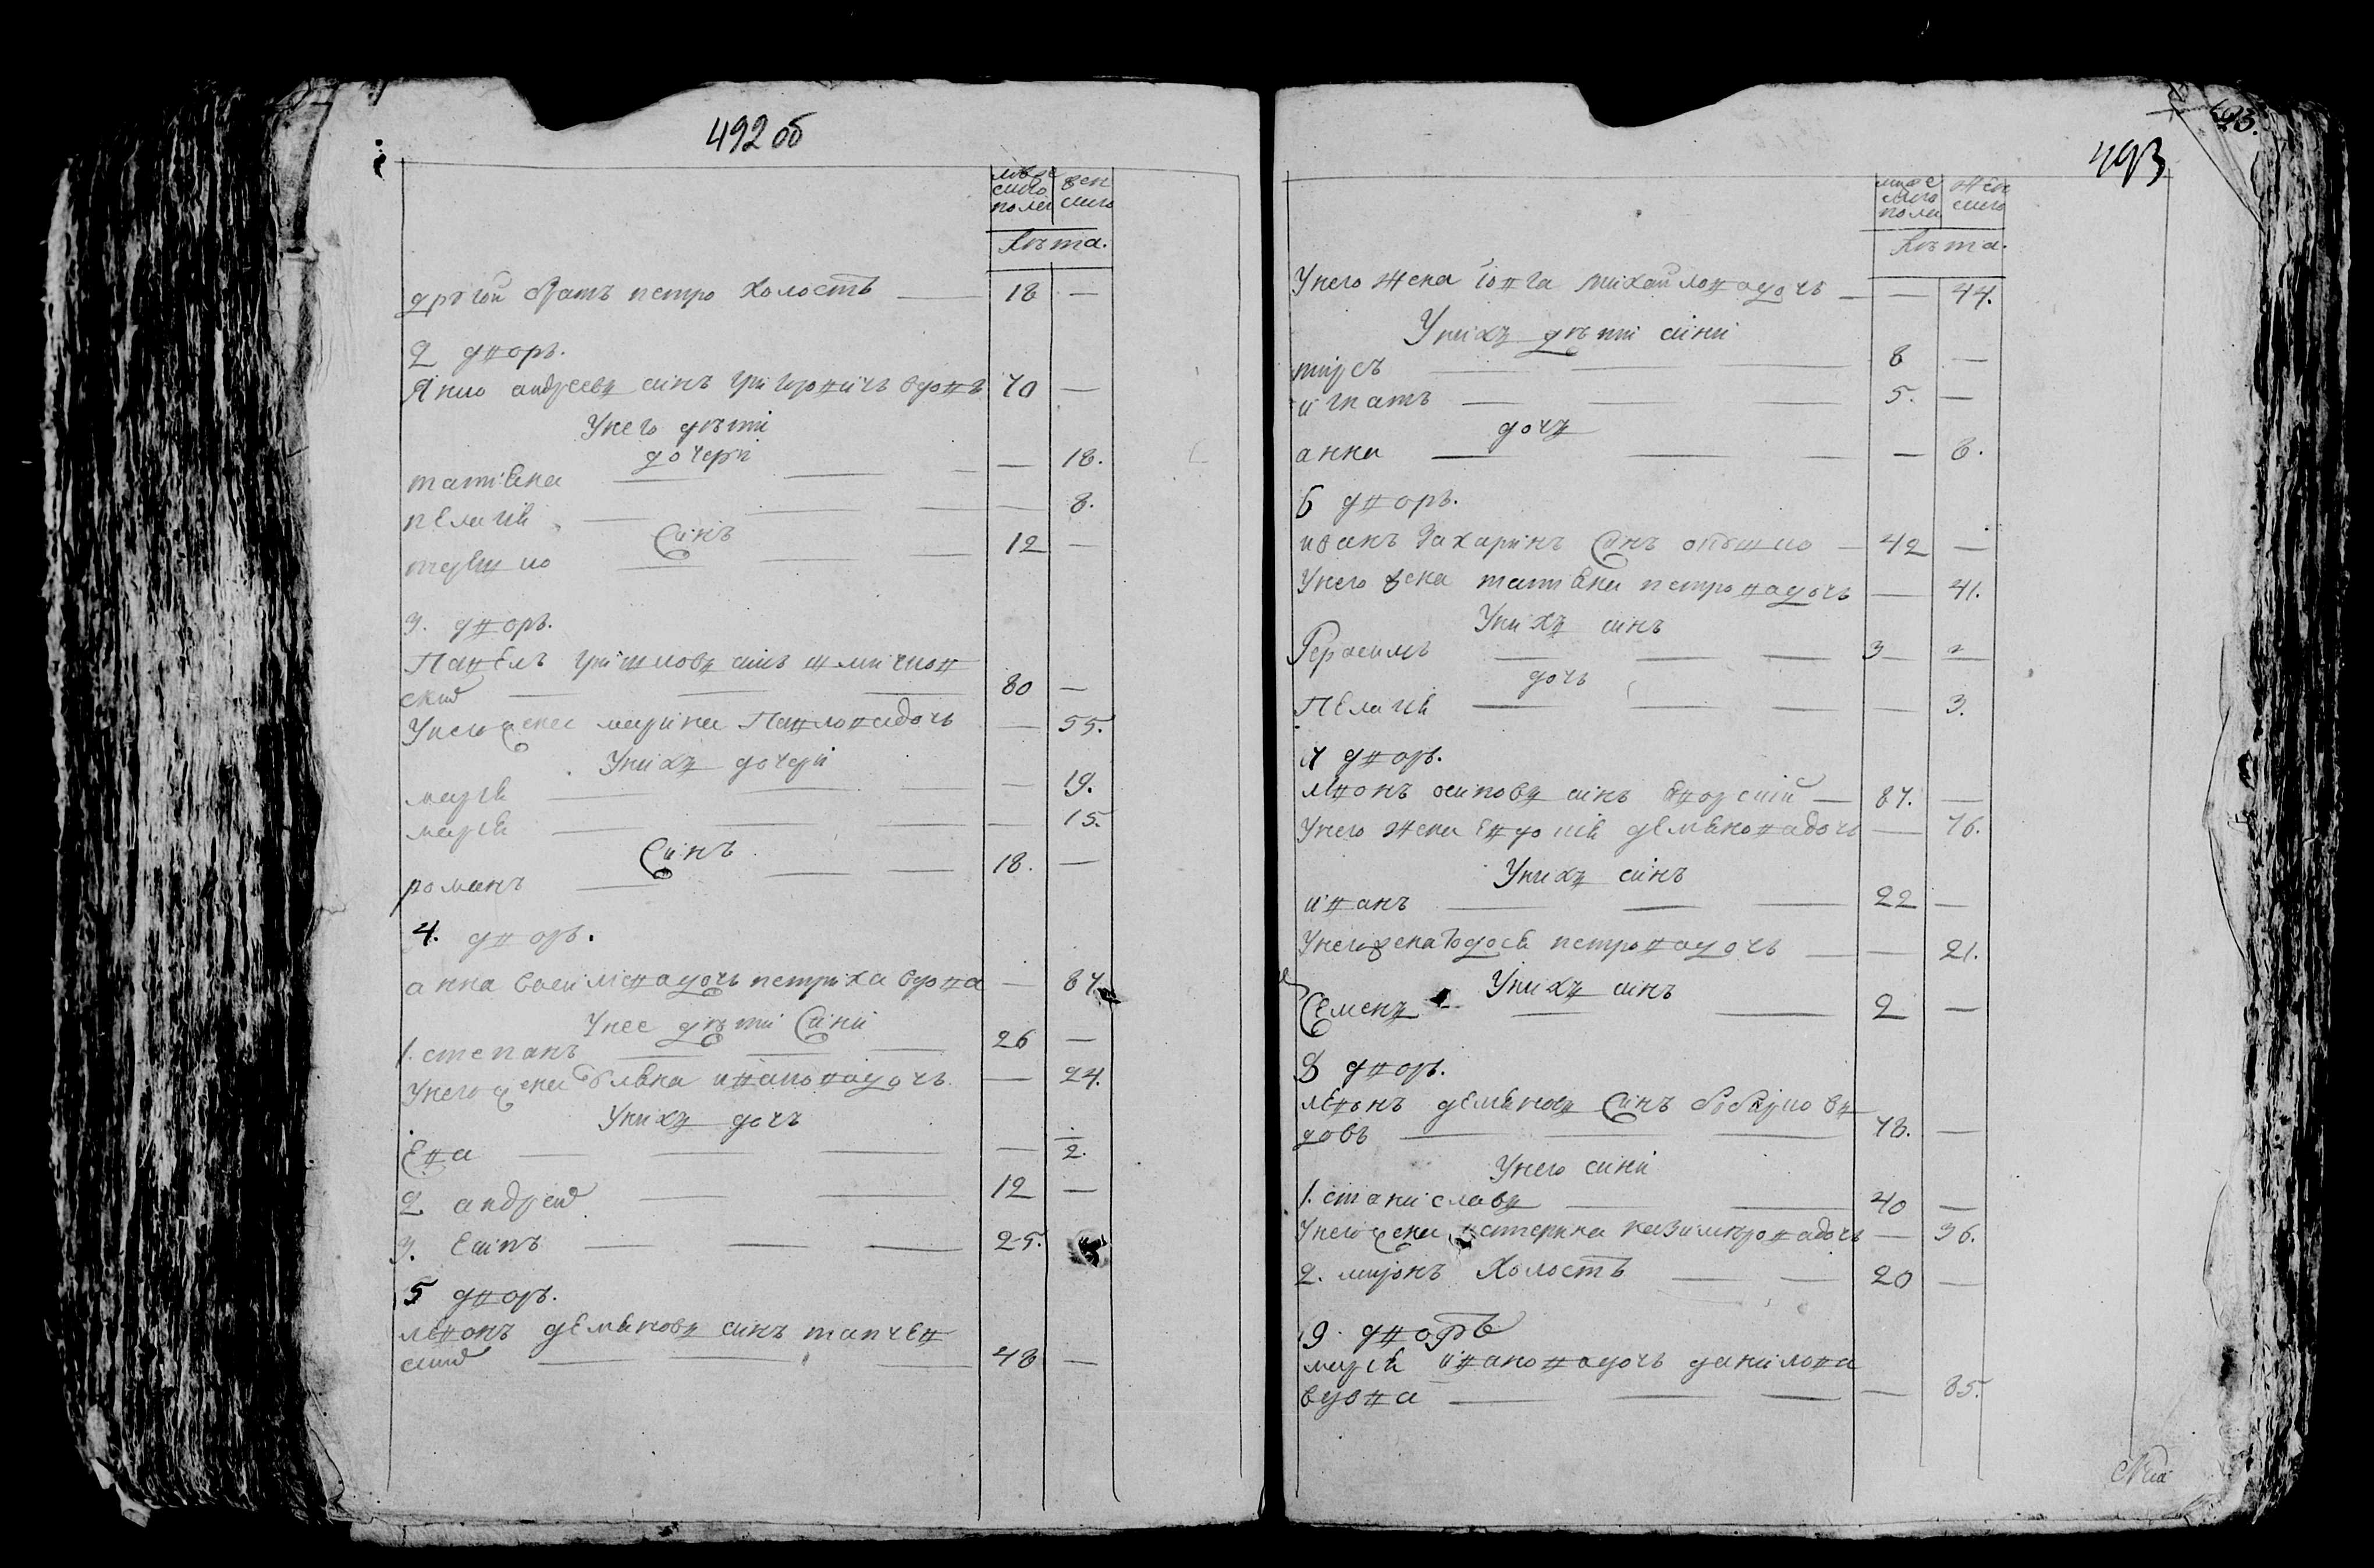 492 об
мужеска полу женска
лѣта.
другой братъ петро холостъ — 18 —
2 дворъ.
Янко андреевъ синъ григоровичъ вдовъ 70 —
У него дѣти
дочери
татіяна — — 18.
пелагія — — 8.
Синъ
12 —
3. дворъ.
Павелъ синъ
ский — 80 —
У него жена марина Павловадочъ — 55.
У нихъ дочери
марія — — 19.
марія — — 15.
Синъ
романъ — 18. —
4. дворъ.
анна дочъ петриха вдова — 87
У нее дѣти Сини
1. степанъ — 26 —
У него жена ивановадочъ — 24.
У нихъ дочъ
Ева — — 2.
2. андрей — 12 —
3. — 25.
5 дворъ.
левонъ демяновъ синъ
ский — 48 —
493
493.
мужеска полу женска
лѣта.
У него жена михайловадочъ — — 44.
У нихъ дѣти сини
8 —
игнатъ — 5. —
дочъ
анна — — 6.
6 дворъ.
иванъ Захаринъ Синъ — 42 —
У него жена татіяна петровадочъ — 41.
У нихъ синъ
Герасимъ — 3 —
дочъ
Пелагія — — 3.
7 дворъ.
левонъ осиповъ синъ — 87. —
У него жена Евдокія демяновадочъ — 76.
У нихъ синъ
иванъ — 22 —
У него жена петровадочъ — — 21.
У нихъ синъ
Семенъ — 2 —
8 дворъ.
левонъ демяновъ Синъ
довъ — 78. —
У него сини
1. станиславъ — 40 —
У него жена катерина казимировадочъ — 36.
2. миронъ Холостъ — 20 —
9. дворъ
марія ивановадочъ данилова
вдова — — 85.